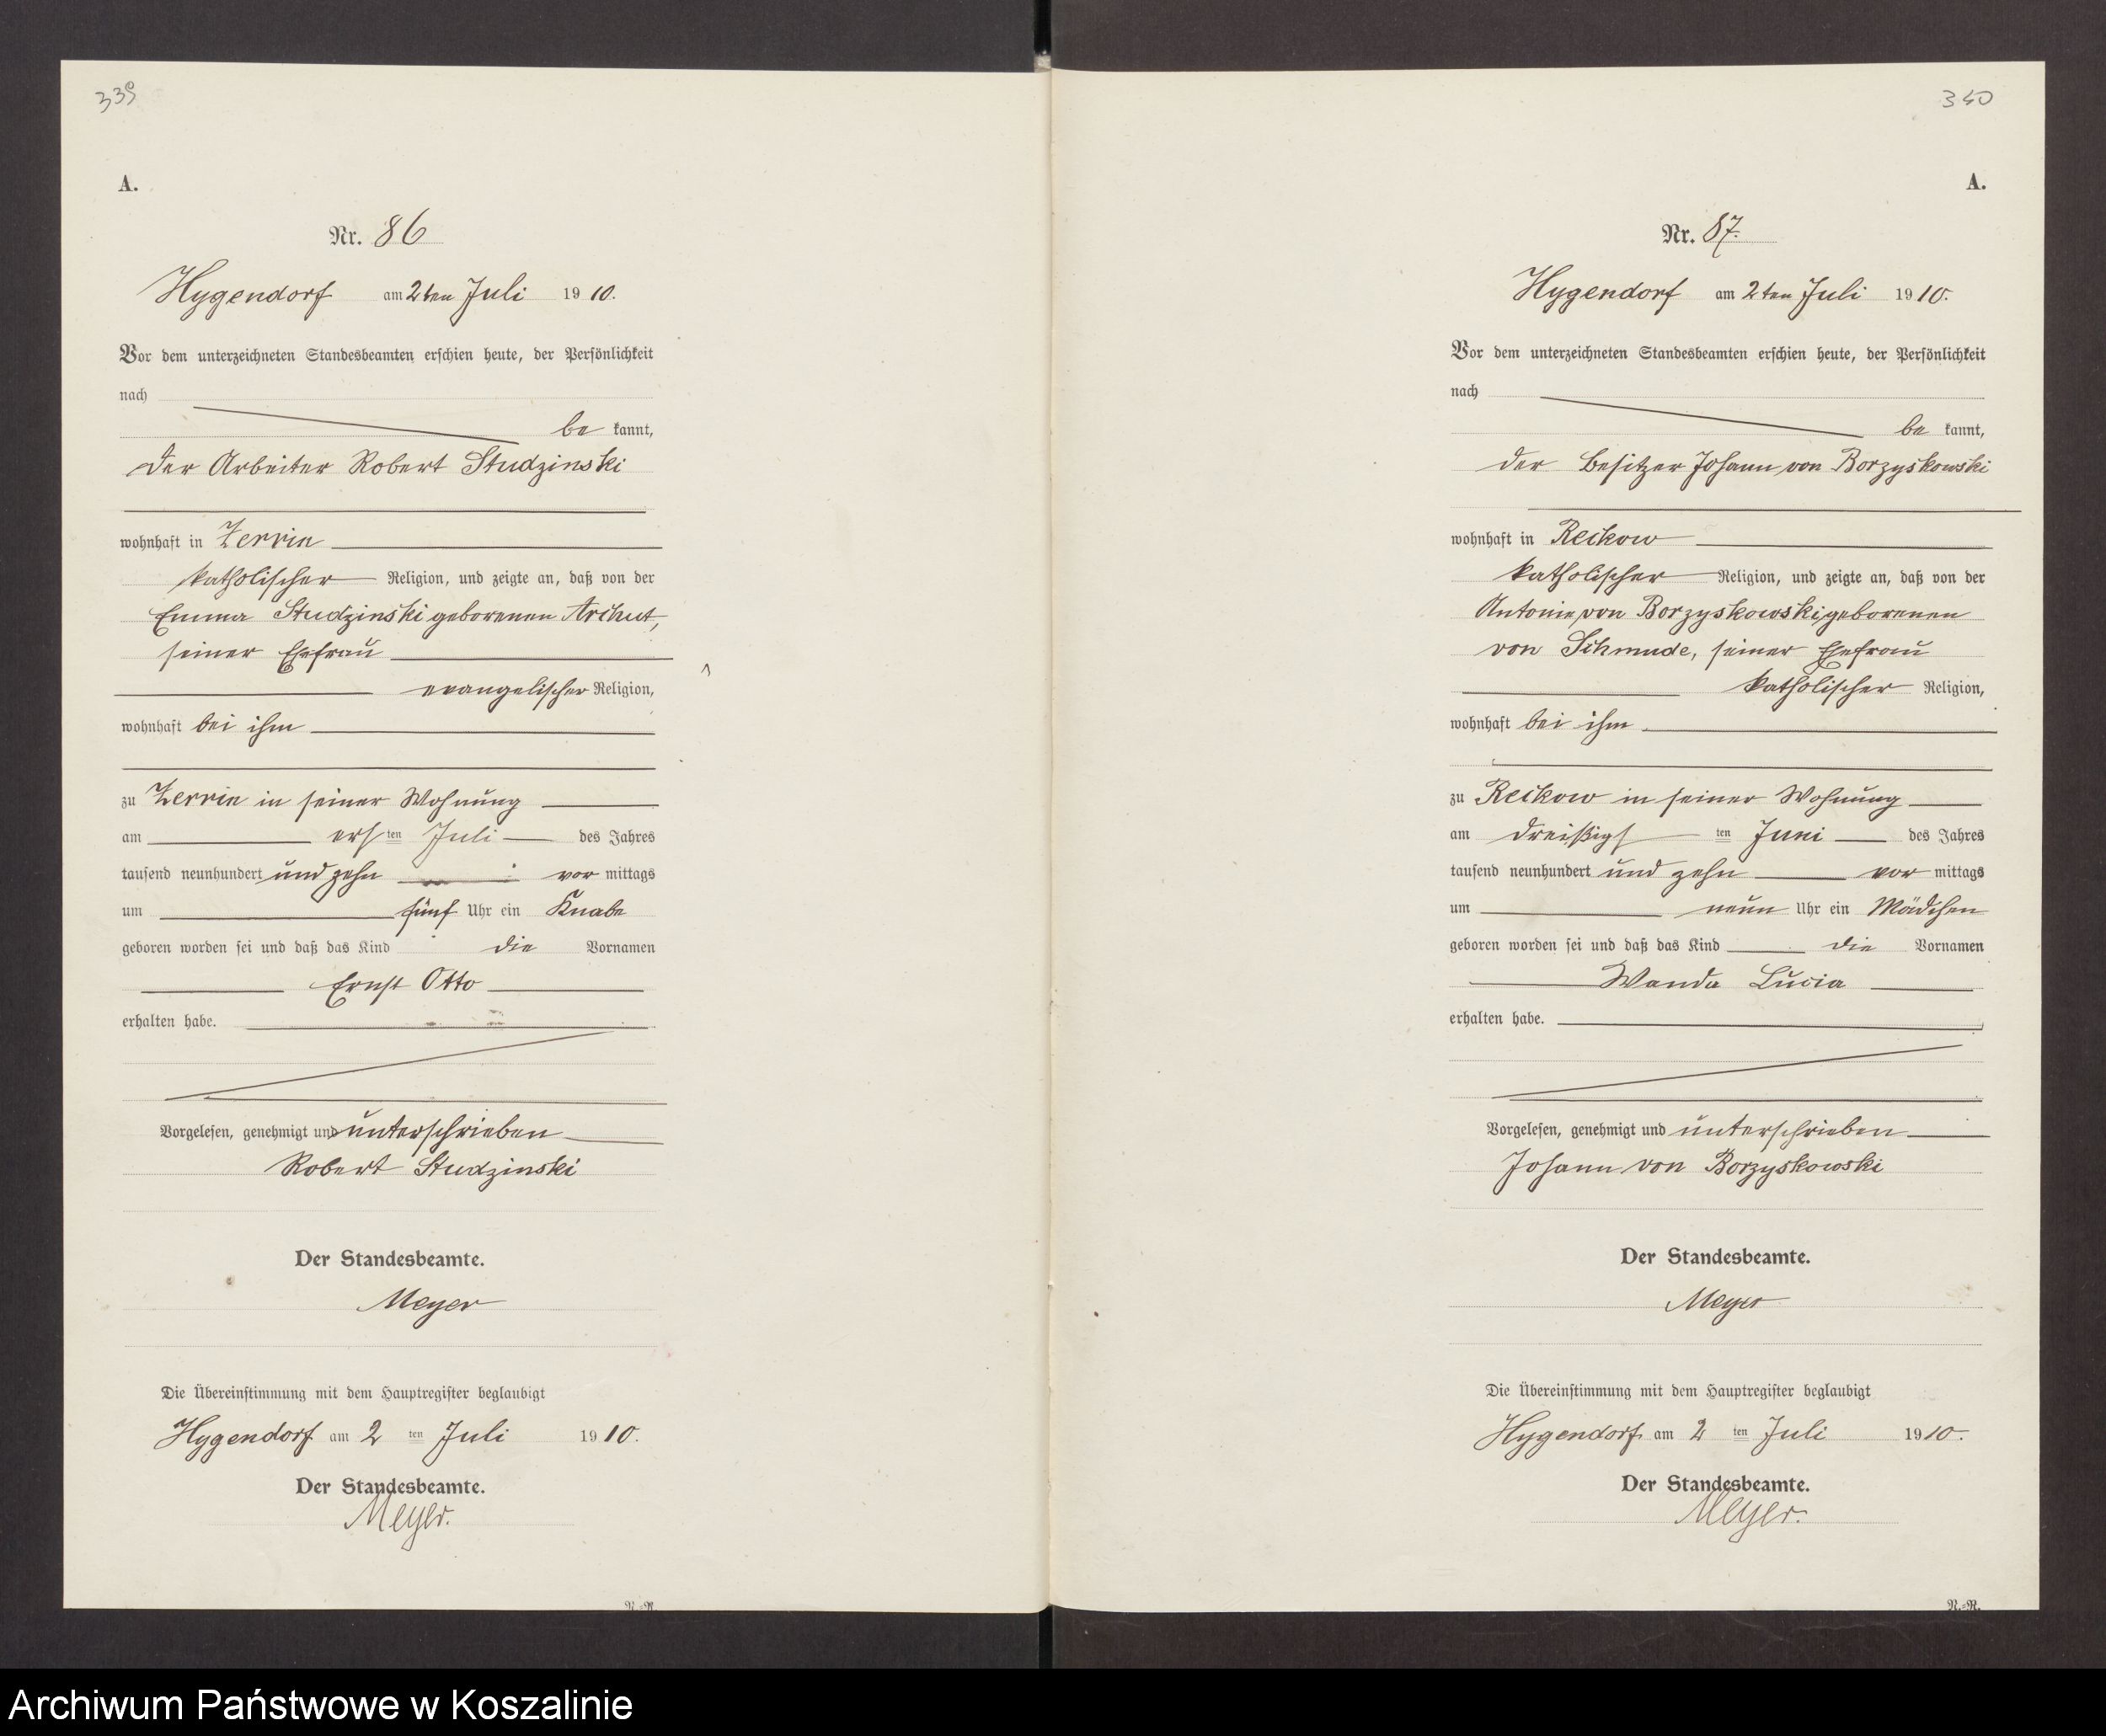 339
A.
Nr. 86
Hygendorf am 2ten Juli 1910.
Vor dem unterzeichneten Standesbeamten erschien heute, der Persönlichkeit
nach
be kannt,
der Arbeiter Robert Studzinski
wohnhaft in Zerrin
katholischer Religion, und zeigte an, daß von der
Emma Studzinski geborenen Archut,
seiner Ehefrau
evangelischer Religion,
wohnhaft bei ihm
zu Zerrin in seiner Wohnung
am ersten Juli des Jahres
tausend neunhundert und zehn vor mittags
um fünf Uhr ein Knabe
geboren worden sei und daß das Kind die Vornamen
Ernst Otto
erhalten habe.
Vorgelesen, genehmigt und unterschrieben
Robert Studzinski
Der Standesbeamte.
Meyer
Die Übereinstimmung mit dem Hauptregister beglaubigt
Hygendorf am 2 ten Juli 1910.
Der Standesbeamte.
Meyer.
340
A.
Nr. 87.
Hygendorf am 2ten Juli 1910.
Vor dem unterzeichneten Standesbeamten erschien heute, der Persönlichkeit
nach
be kannt,
der Besitzer Johann von Borzyskowski
wohnhaft in Reckow
katholischer Religion, und zeigte an, daß von der
Antonie von Borzyskowski, geborenen
von Schmude, seiner Ehefrau
katholischer Religion,
wohnhaft bei ihm
zu Reckow in seiner Wohnung
am dreißigsten Juni des Jahres
tausend neunhundert und zehn vor mittags
um neun Uhr ein Mädchen
geboren worden sei und daß das Kind die Vornamen
Wanda Lucia
erhalten habe.
Vorgelesen, genehmigt und unterschrieben
Johann von Borzyskowski
Der Standesbeamte.
Meyer
Die Übereinstimmung mit dem Hauptregister beglaubigt
Hygendorf am 2 ten Juli 1910.
Der Standesbeamte.
Meyer.
N.=R.
Archiwum Państwowe w Koszalinie